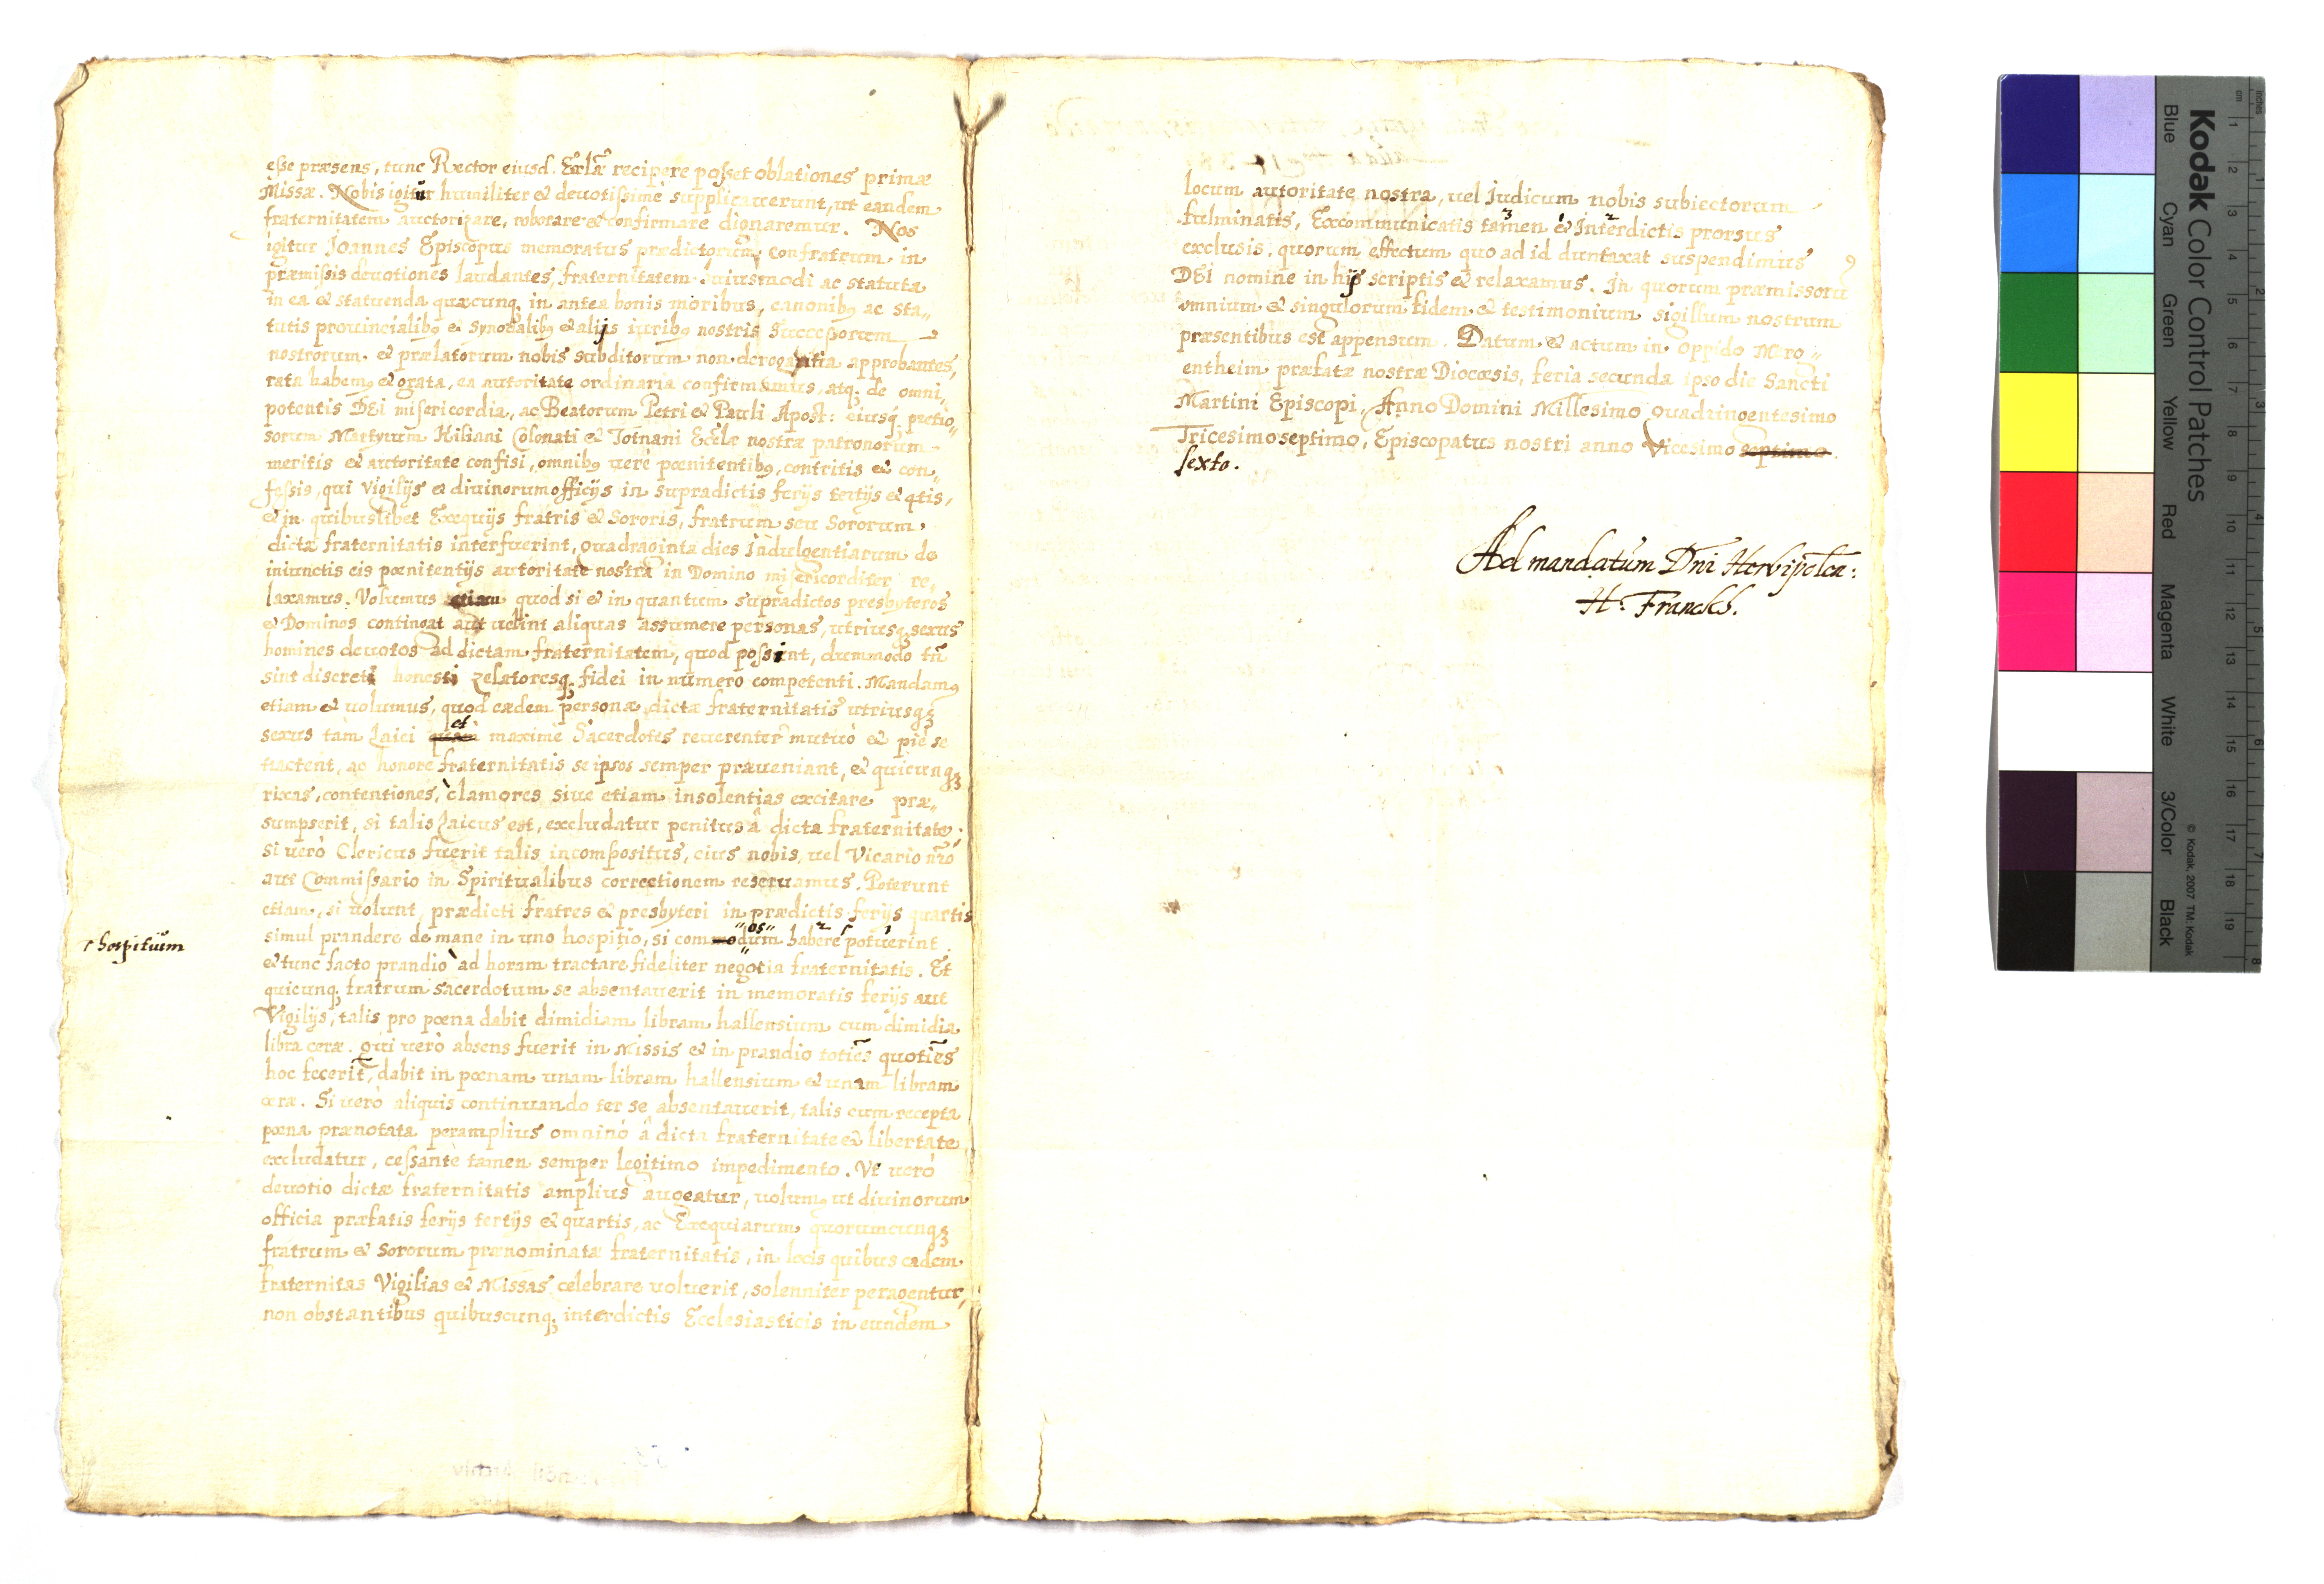 esse præsens, tunc Rector eiusd. Eccłæ recipere posset oblationes primæ
Missæ. Nobis igitur humiliter & deuotissimè supplicauerunt, ut eandem
fraternitatem auctorizare, roborare & confirmare dignaremur. Nos
igitur Joannes Episcopus memoratus prædictorum confratrum in
præmissis deuotiones laudantes, fraternitatem huiusmodi ac statuta
in ea & statuenda quæcunq; in antea bonis moribus, canonibꝯ ac sta„
tutis prouincialibꝯ & synodalibꝯ & alijs iuribꝯ nostris Successorum
nostrorum & prælatorum nobis subditorum non derogantia approbantes,
rata habemꝯ & grata, ea autoritate ordinaria confirmamus, atq; de omni„
potentis DEI misericordia, ac Beatorum Petri & Pauli Apost: eiusq; pretio„
sorum Martyrum Kiliani Colonati & Totnani Eccłæ nostræ patronorum
meritis & autoritate confisi, omnibꝯ uerè pœnitentibꝯ, contritis & con„
fessis, qui Vigilijs & diuinorum officijs in supradictis ferijs tertijs & qtis,
& in quibuslibet Exequijs fratris & Sororis, fratrum seu Sororum,
dictæ fraternitatis interfuerint, quadraginta dies Indulgentiarum de
iniunctis eis pœnitentijs autoritate nostra in Domino misericorditer re„
laxamus. Volumus etiam quod si & in quantum supradictos presbyteros
& Dominos contingat aut uelint aliquas assumere personas, utriusq; sexus
homines deuotos ad dictam fraternitatem, quod possint, dummodo tñ
sint discreti honesti zelatoresq; fidei in numero competenti. Mandamꝯ
etiam & uolumus, quod eædem personæ dictæ fraternitatis utriusq;
sexus tàm Laici quàm et maximè Sacerdotes reuerenter mutuò & piè se
tractent, ac honore fraternitatis se ipsos semper præueniant, & quicunq;
rixas, contentiones, clamores siue etiam insolentias excitare præ„
sumpserit, si talis Laicus est, excludatur penitus â dicta fraternitate;
si uerò Clericus fuerit talis incompositus, eius nobis, uel Vicario nr̃o
aut Commissario in Spiritualibus correctionem reseruamus. Poterunt
etiam, si uolunt, prædicti fratres & presbyteri in prædictis ferijs quartis
simul prandere de mane in uno hospitio, si commodum "os" habere potuerint
r hospitium
& tunc facto prandio ad horam tractare fideliter negotia fraternitatis. Et
quicunq; fratrum sacerdotum se absentauerit in memoratis ferijs aut
Vigilijs, talis pro pœna dabit dimidiam libram hallensium cum dimidia
libra ceræ. Qui uerò absens fuerit in Missis & in prandio toties quoties
hoc fecerit, dabit in pœnam unam libram hallensium & unam libram
ceræ. Si uerò aliquis continuando ter se absentauerit, talis cum recepta
pœna prænotata peramplius omninò â dicta fraternitate & libertate
excludatur, cessante tamen semper legitimo impedimento. Vt uerò
deuotio dictæ fraternitatis amplius augeatur, uolumꝯ ut diuinorum
officia præfatis ferijs tertijs & quartis, ac Exequiarum quorumcunq;
fratrum & Sororum prænominatæ fraternitatis, in locis quibus eadem
fraternitas Vigilias & Missas celebrare uoluerit, solenniter peragentur,
non obstantibus quibuscunq; interdictis Ecclesiasticis in eundem
locum autoritate nostra, uel Judicum nobis subiectorum
fulminatis, Excommunicatis tamen & Interdictis prorsus
exclusis, quorum effectum quo ad id duntaxat suspendimus
DEI nomine in hijs scriptis & relaxamus. In quorum præmissorũ
omnium & singulorum fidem & testimonium sigillum nostrum
præsentibus est appensum. Datum & actum in oppido Mergentheim
entheim præfatæ nostræ Diocœsis, feria secunda ipso die Sancti
Martini Episcopi, Anno Domini Millesimo Quadringentesimo
Tricesimoseptimo, Episcopatus nostri anno Vicesimo septimo.
sexto.
Ad mandatum Dni Herbipolen:
H: Franckh.
Kodak Color Control Patches
Blue Cyan Green Yellow Red Magenta White 3/Color Black
© Kodak, 2007 TM: Kodak
cm 1 2 3 4 5 6 7 8 9 10 11 12 13 14 15 16 17 18 19
inches 1 2 3 4 5 6 7 8